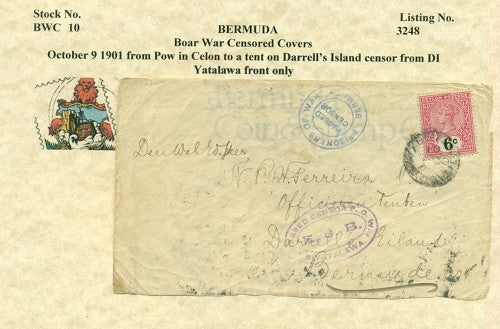 Stock No.
BWC 10
BERMUDA
Listing No.
3248
Boar War Censored Covers
October 9 1901 from Pow in Celon to a tent on Darrell's Island censor from DI
Yatalawa front only
PRISONERS OF WAR
PASSED
CENSOR
6c
Den Wel Ed. Heer
N. P. H. Ferreira
Officieren Tenten
PASSED CENSOR P.O.W.
B.
Darrells Eiland
Bermuda